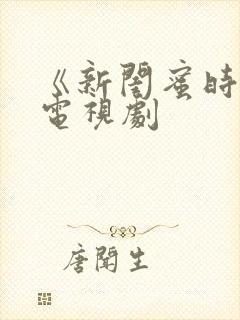 《新閨蜜時
電視劇
唐聞生